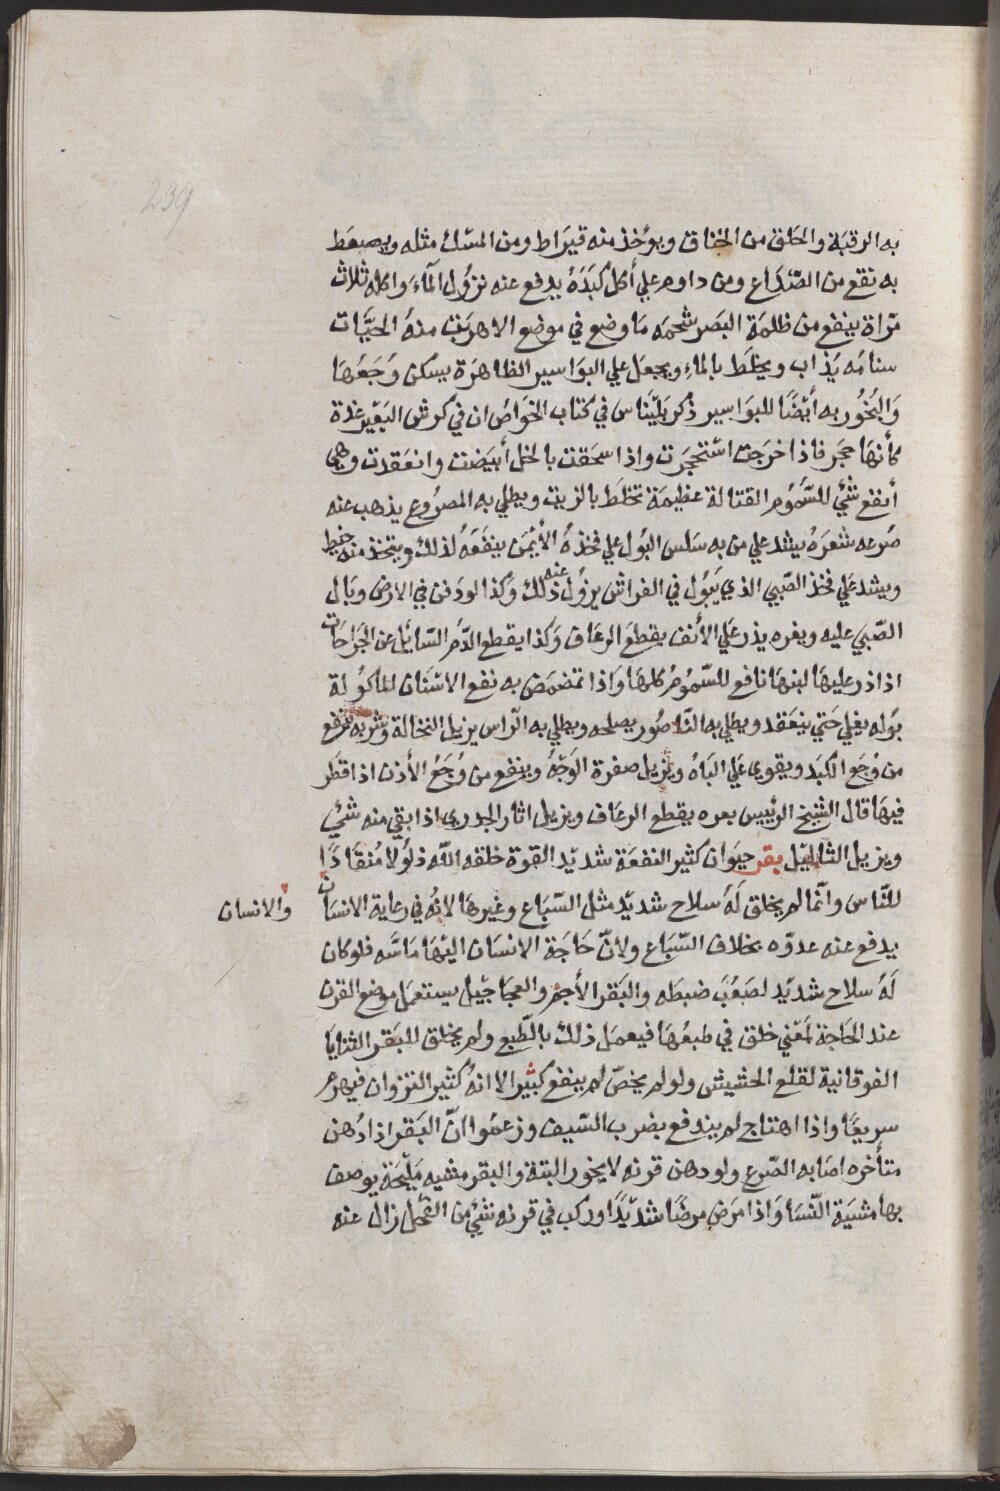 239
به الرقبة والحلق من الخناق ويؤخذ منه قيراط ومن المسك مثله ويصعط
به نفع من الصداع ومن داوم علي أكل كبده يدفع عنه نزول المآء واكله ثلاث
مراة ينفع من ظلمة البصر شحمه ما وضع في موضع الا هربت منه الحيات
سنامه يذاب ويخلط بالماء ويجعل علي البواسير الظاهرة يسكن وجعها
والبخور به أيضا للبواسير ذكر بليناس في كتاب الخواص ان في كرش البعير غدة
كأنها حجر فاذا خرجت استحجرت واذا سحقت بالخل أبيضت وانعقدت وهي
أنفع شئ للسموم القتالة عظيمة تخلط بالزيت ويطلي به المصروع يذهب عنه
صرعه شعره يشد علي من به سلس البول علي فخذه الأيمن ينفعه لذلك ويتخذ منه خيط
ويشد علي فخذ الصبي الذي يبول في الفراش يزول عنه ذلك وكذا لو دفن في الارض وبال
الصبي عليه وبعره يذر علي الأنف يقطع الرعاف وكذا يقطع الدم السائل عن الجراحات
اذا ذر عليها لبنها نافع للسموم كلها واذا تمضمض به نفع الاسنان المأكولة
بوله يغلي حتي ينعقد ويطلي به الناصور يصلحه ويطلي به الراس يزيل النخالة وشربه ينفع
من وجع الكبد ويقوي علي الباه ويزيل صفرة الوجه وينفع من وجع الأذن اذا قطر
فيها قال الشيخ الرئيس بعره يقطع الرعاف ويزيل اثار الجدري اذا بقي منه شئ
ويزيل الثاليل بقر حيوان كثير النفعة شديد القوة خلقه الله ذلولا منقادا
للناس وانما لم يخلق له سلاح شديد مثل السباع وغيرها لانه في رعاية الانسان
والانسان
يدفع عنه عدوه بخلاف السباع ولان حاجة الانسان اليها ماسه فلو كان
له سلاح شديد لصعب ضبطه والبقر الأجم والعجاجيل يستعمل موضع القرن
عند الحاجة لمعني خلق في طبعها فيعمل ذلك بالطبع ولم يخلق للبقر الثنايا
الفوقانية لقلع الحشيش ولو لم يخص لم ينفع كبير الا انه كثير النزوان فيهرم
سريعا واذا اهتاج لم يندفع بضرب السيف وزعموا ان البقر اذا دهن
متأخره اصابه الصرع ولو دهن قرنه لا يخور البتة والبقر مشيه مليحة يوصف
بها مشية النسا واذا مرض مرضا شديدا وركب في قرنه شئ من القمل زال عنه